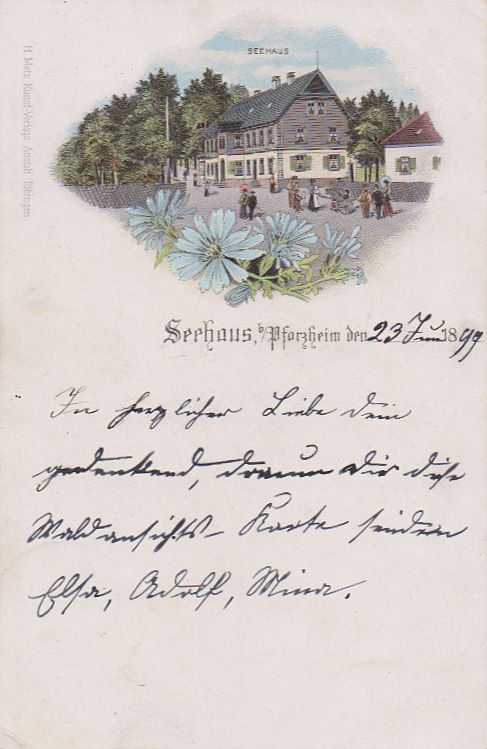 SEEHAUS
H. Merz Kunst-Verlags Anstalt Ebingen
Seehaus, b/Pforzheim den 23 Juni 1899
In herzlicher Liebe dein
gedenkend, Dir diese
Waldansichts-Karte senden
Elsa, Adolf, Mina.